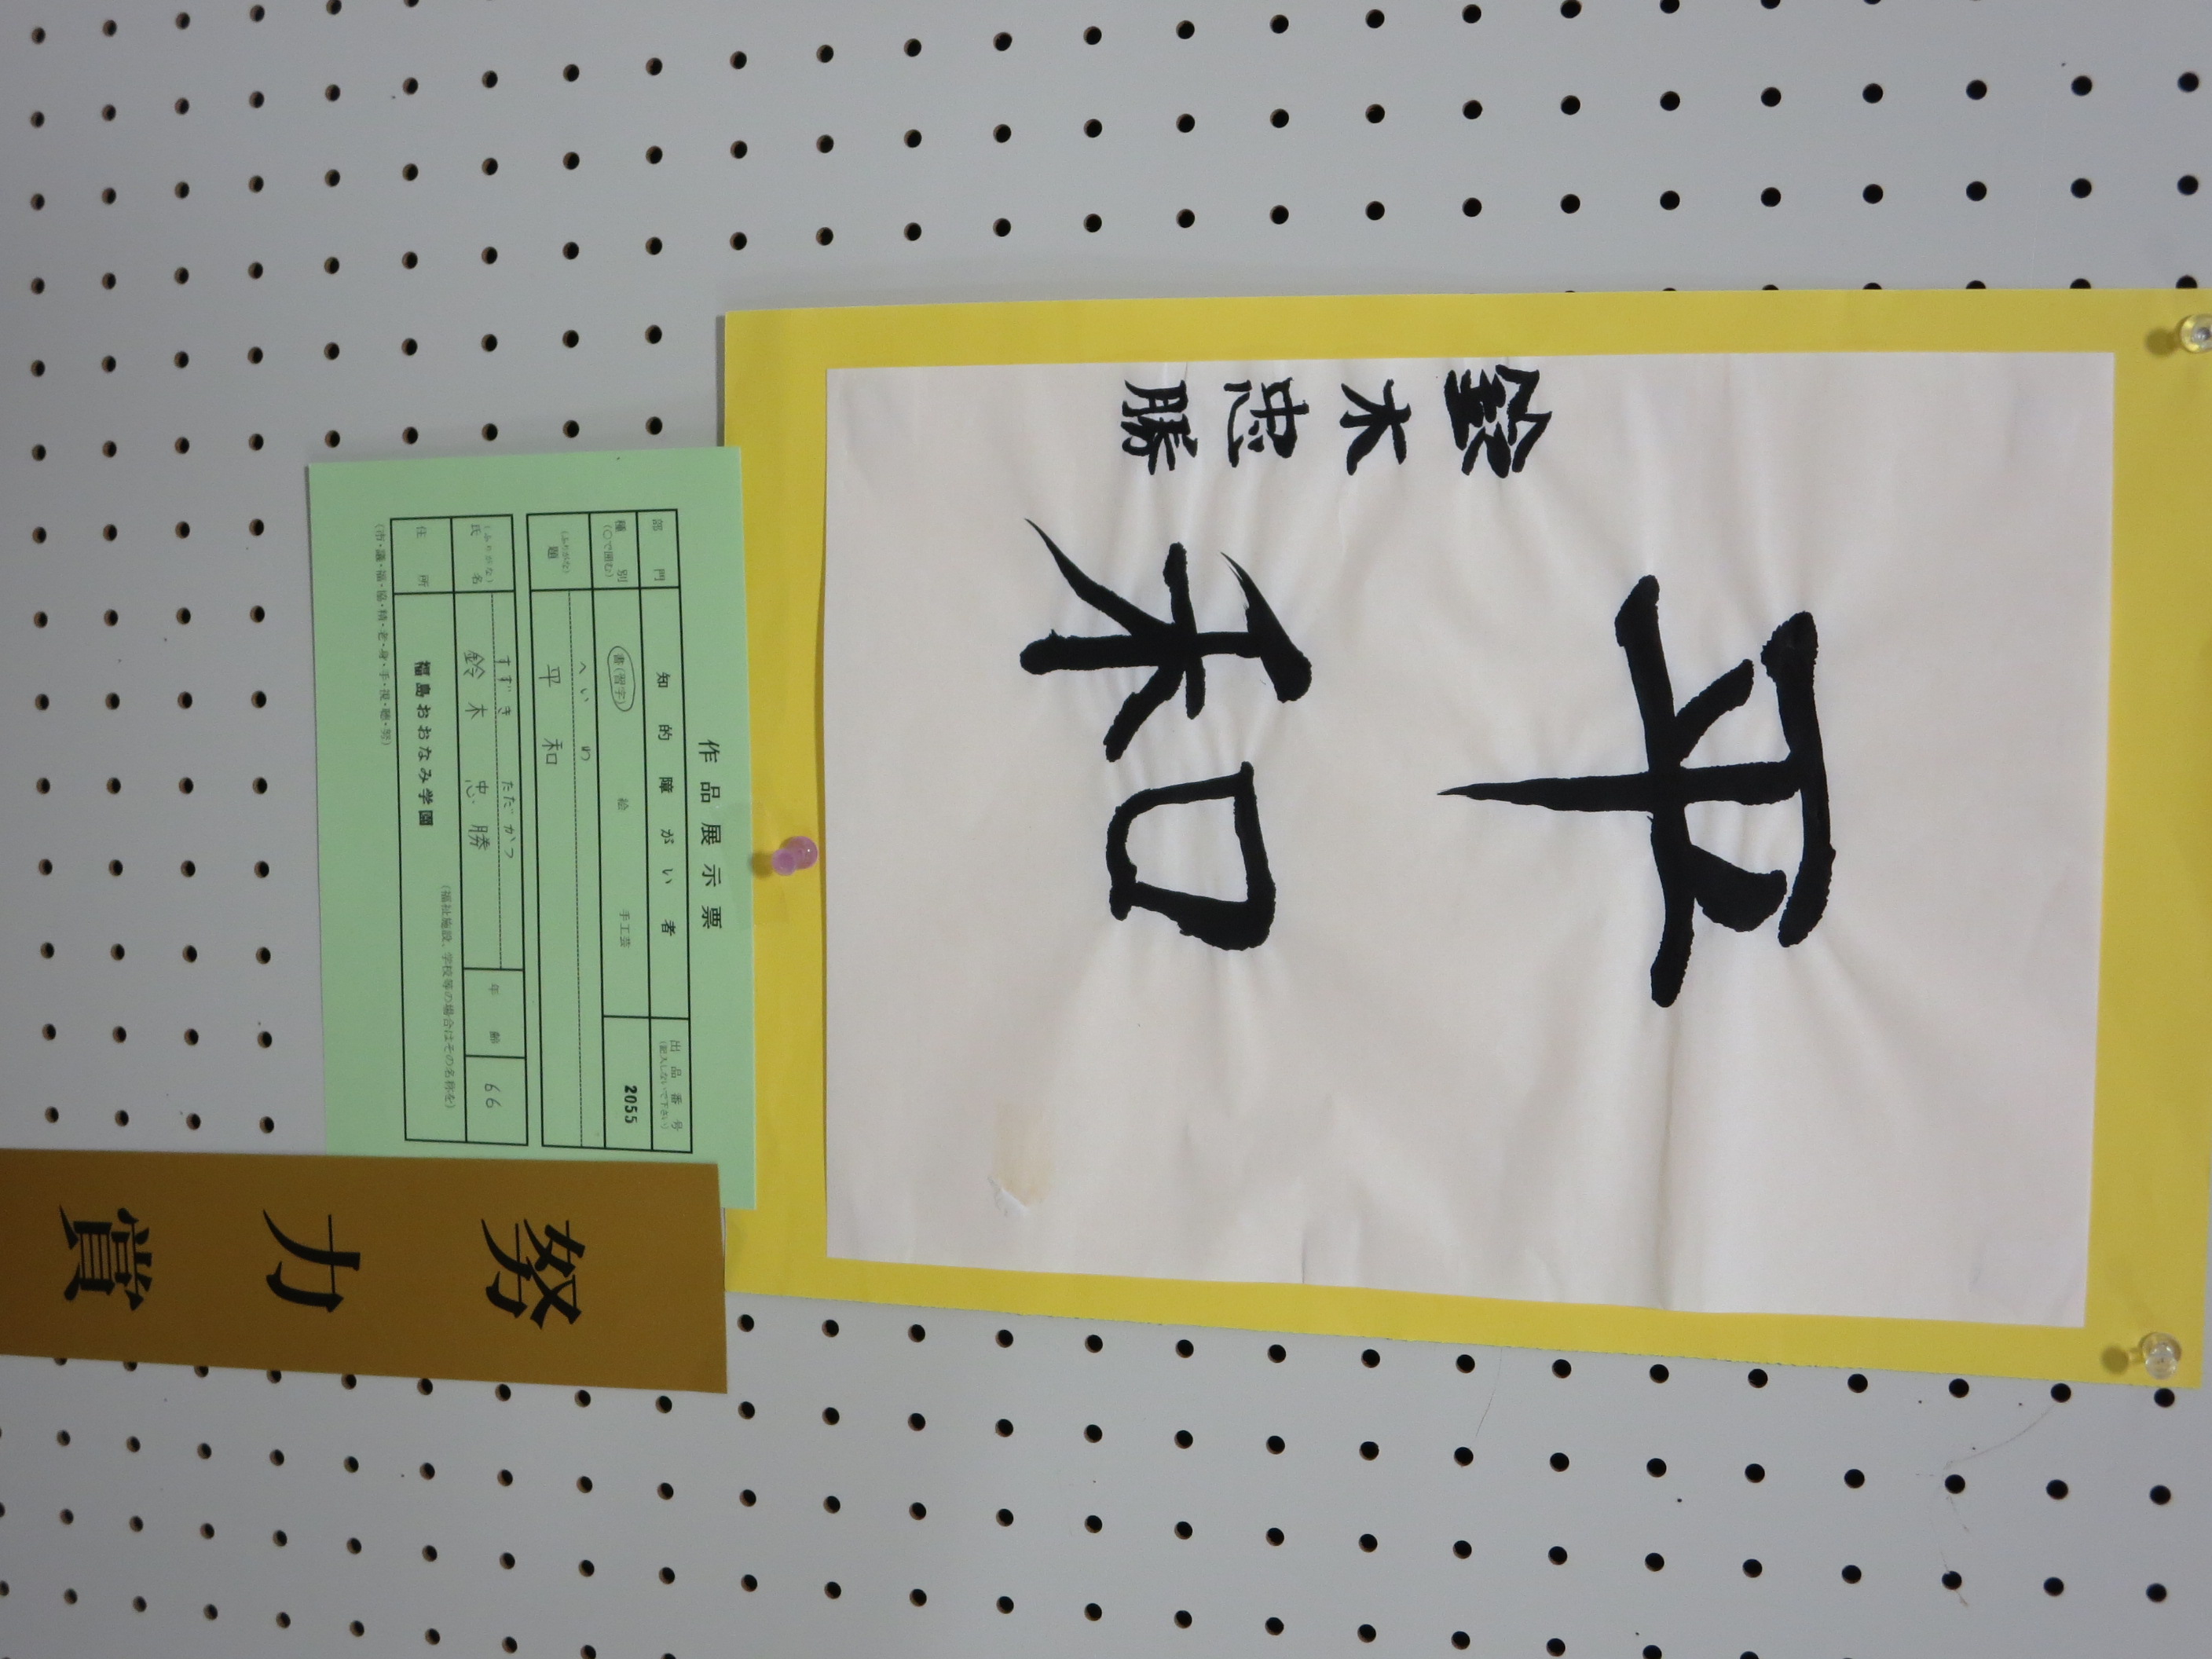 平和
鈴木忠勝
作品展示票
部門 知的障がい者 出品番号
(記入しないで下さい)
種別 書(習字) 絵 手工芸 2055
(○で囲む)
(ふりがな) へいわ
題 平和
(ふりがな) すずき ただかつ
氏名 鈴木 忠勝 年齢 66
(福祉施設、学校等の場合はその名称を)
住所 福島おおなみ学園
努力賞